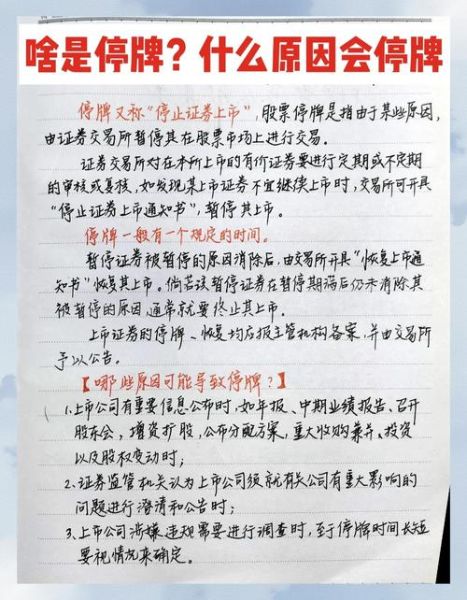 啥是停牌？什么原因会停牌
停牌又称“停止证券上市”，股票停牌是指由于某些原因，
由证券交易所暂停其在股票市场上进行交易。
证券交易所对在本所上市的有价证券要进行定期或不定期
的审核或复核，如发现某上市证券不宜继续上市时，交易所可开具
“停止证券上市通知书”，暂停其上市。
停牌一般有一个规定的时间。
暂停证券被暂停的原因消除后，由交易所开具“恢复上市通
知书”恢复其上市。倘若该暂停证券在暂停期满后仍未消除其
被暂停的原因，通常就要终止其上市。
上市证券的停牌、恢复均应报主管机构备案，并由交易所
予以公告。
【哪些原因可能导致停牌？】
1.上市公司有重要信息公布时，如年报、中期业绩报告、召开
股东会，增资扩股，公布分配方案，重大收购兼并、投资
以及股权变动时；
2.证券监管机关认为上市公司须就有关公司有重大影响的
问题进行澄清和公告时；
3.上市公司涉嫌违规需要进行调查时，至于停牌时间长短
要视情况来确定。